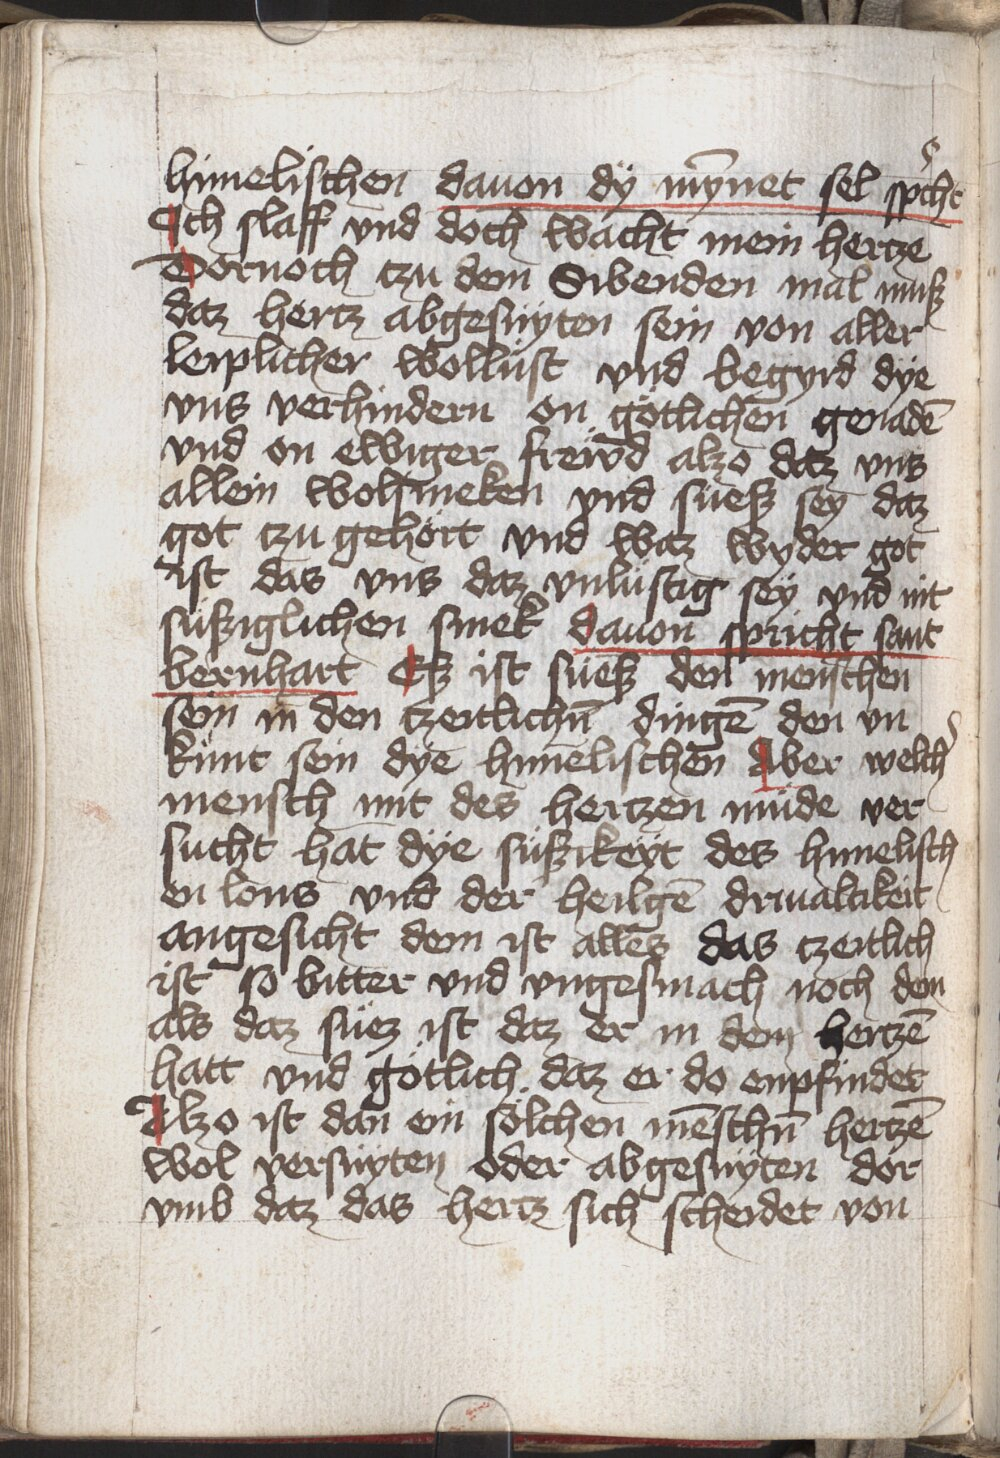 himelischen dauon dÿ mÿnet sel spͥcht
Ich slaff vnd doch wacht mein hertze
Dornoch czu dem Sibenden mal muß
daz hertz abgesnÿten sein von aller
leiplicher wollüst vnd begyrd dÿe
vns verhindern on götlichen genadē
vnd on ewiger freẅd alzo daz vns
allein wolsmeken vnd süeß seÿ daz
got czu gehört vnd waz wyder got
ist das vns daz vnlüstig seÿ vnd nit
süßziglichen smek dauon spricht sant
bernhart Eß ist süeß den menschen
sein in den czeitlichn̄ dingē den vn
künt sein dÿe himelischen Aber welch͛
mensch mit des hertzen müde ver
sucht hat dÿe süßikeÿt des himelisch
en lons vnd der heilgē driualtikeit
angesicht dem ist alles das czeitlich
ist so bitter vnd vngesmach noch dem
als daz süez ist daz er in dem hertzē
hatt vnd götlich daz er do enpfindet
Alzo ist dan ein sölchen mēschn̄ hertzē
wol versnÿten oder abgesnÿten dor
vmb daz das hertz sich scheidet von